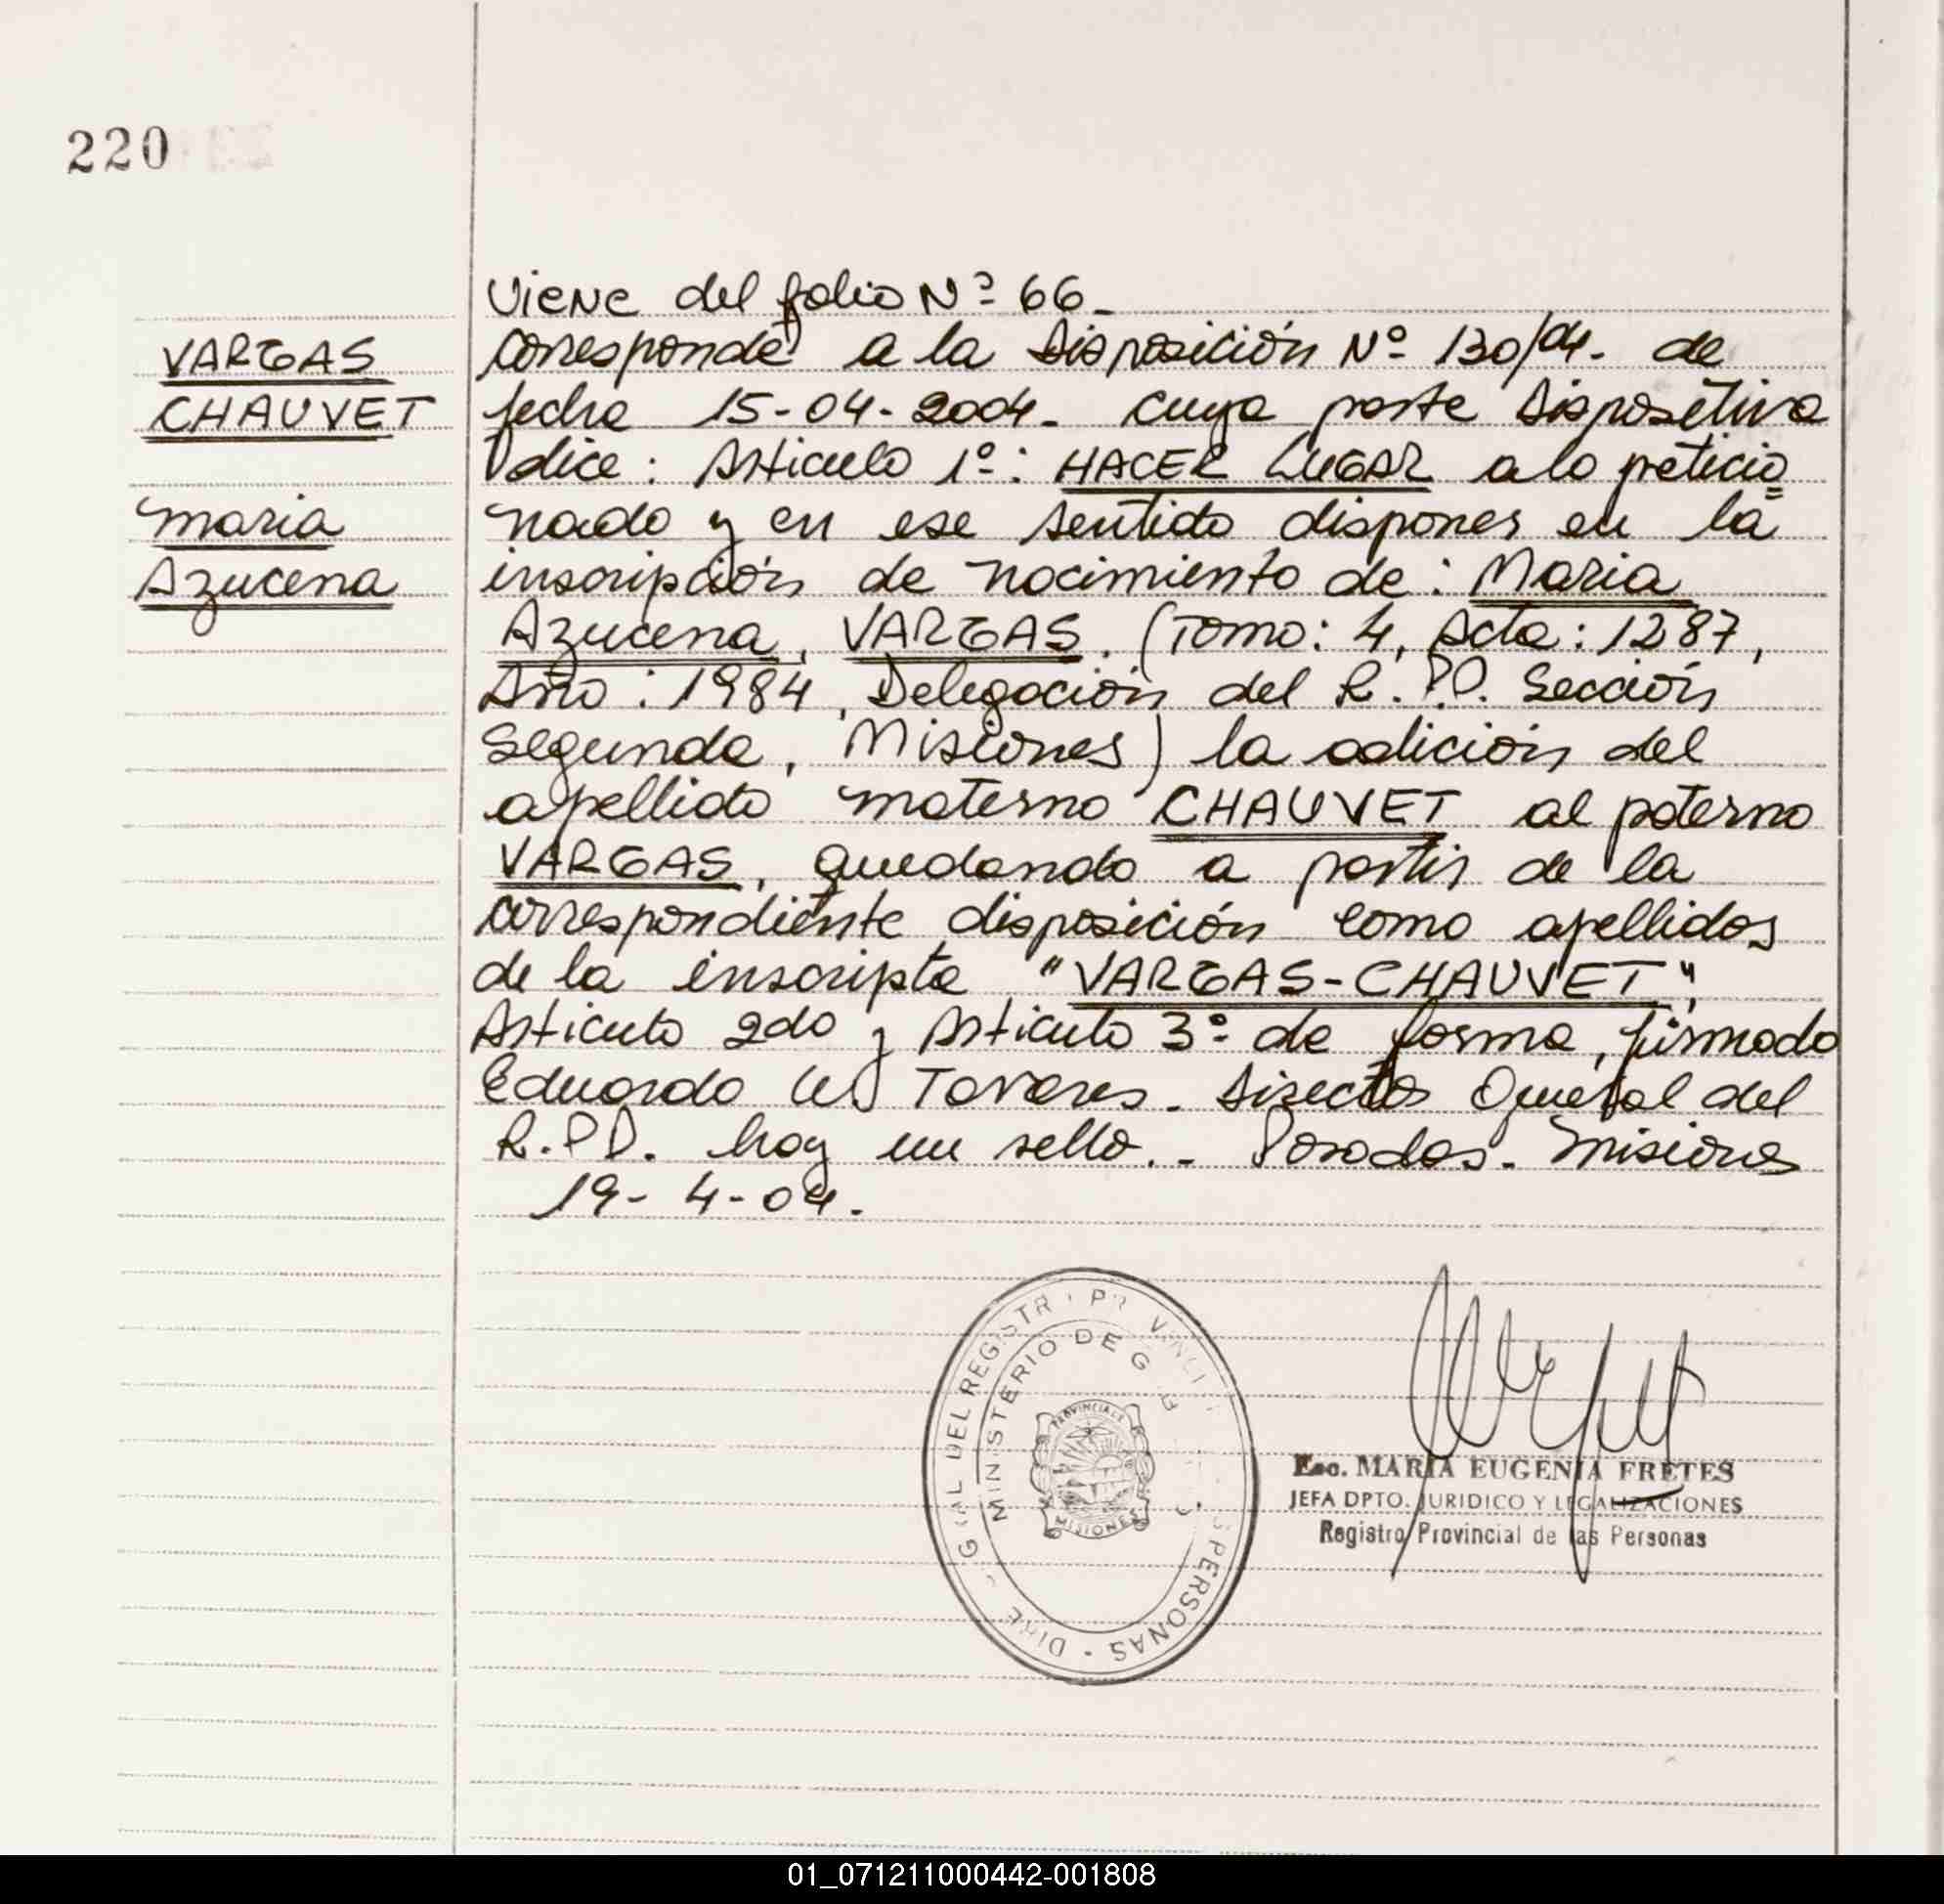 220
VARGAS
CHAUVET
Maria
Azucena
Viene del folio Nº 66_
corresponde a la Disposición Nº 130/04. de
fecha 15-04-2004. cuya parte dispositiva
dice: Articulo 1º: HACER LUGAR a lo peticio
nado y en ese sentido disponer en la
inscripción de nacimiento de: Maria
Azucena, VARGAS. (Tomo: 4, Acta: 1287,
Año: 1984, Delegación del R.PP. Sección
Segunda, Misiones) la adición del
apellido materno CHAUVET al paterno
VARGAS, quedando a partir de la
correspondiente disposición como apellidos
de la inscripta "VARGAS-CHAUVET",
Articulo 2do y Articulo 3º de forma, firmado
Eduardo Tavares. Director General del
R.PP. hay un sello.. Posadas. Misiones
19-4-04.
MINISTERIO DE G
DEL REGISTR
PERSONAS
MISIONES
Esc. MARIA EUGENIA FRETES
JEFA DPTO. JURIDICO Y LEGALIZACIONES
Registro Provincial de las Personas
01_071211000442-001808